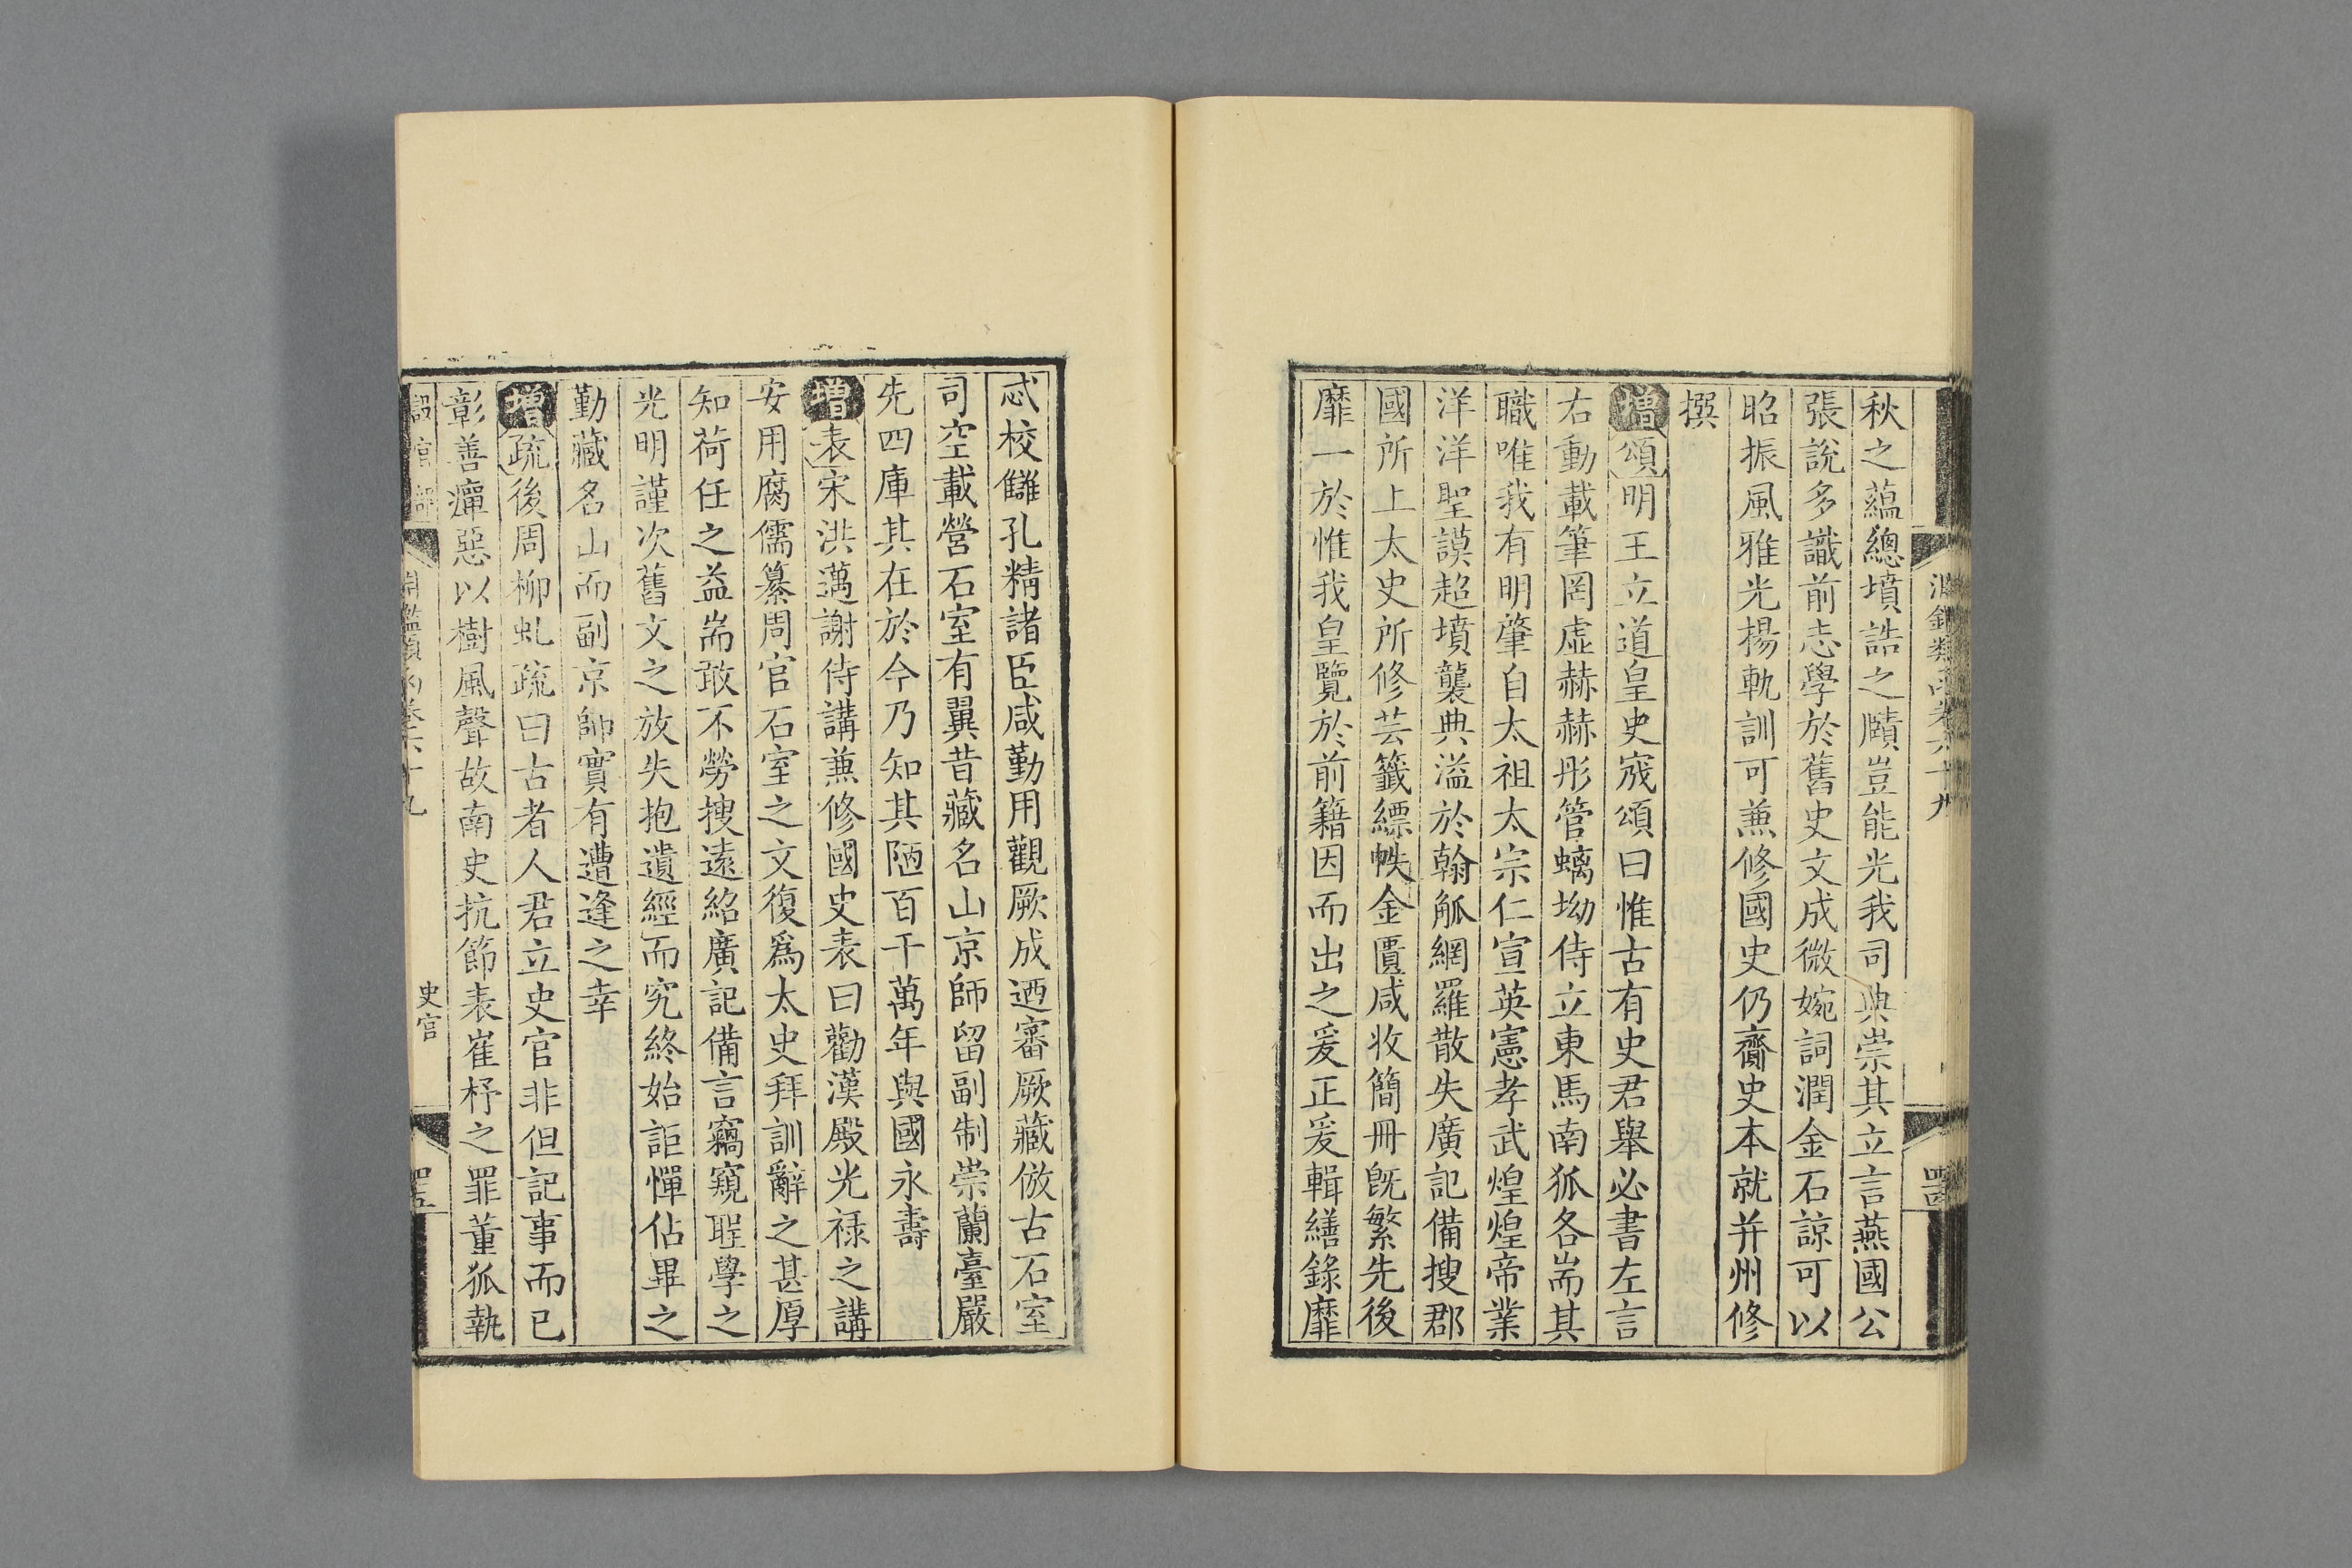 秋之蘊總墳誥之賾豈能光我司典崇其立言燕國公
張說多識前志學於舊史文成微婉詞潤金石諒可以
昭振風雅光楊軌訓可兼修國史仍齎史本就并州修
撰
增頌明王立道皇史宬頌曰惟古有史君舉必書左言
右動載筆罔虛赫赫彤管螭坳侍立東馬南狐各耑其
職唯我有明肇自太祖太宗仁宣英憲孝武煌煌帝業
洋洋聖謨超墳襲典溢於翰觚網羅散失廣記備搜郡
國所上太史所修芸籖縹帙金匱咸收簡冊旣繁先後
靡一於惟我皇覽於前籍因而出之爰正爰輯繕錄靡
忒校讎孔精諸臣咸勤用觀厥成迺審厥藏倣古石室
司空載營石室有翼昔藏名山京師留副制崇蘭臺嚴
先四庫其在於今乃知其陋百千萬年與國永壽
增表宋洪邁謝侍講兼修國史表曰勸漢殿光祿之講
安用腐儒纂周官石室之文復爲太史拜訓辭之甚厚
知荷任之益耑敢不勞搜遠紹廣記備言竊窺聖學之
光明謹次舊文之放失抱遺經而究終始詎憚佔畢之
勤藏名山而副京師實有遭逢之幸
增疏後周柳虬疏曰古者人君立史官非但記事而已
彰善癉惡以樹風聲故南史抗節表崔杼之罪董狐執
史官